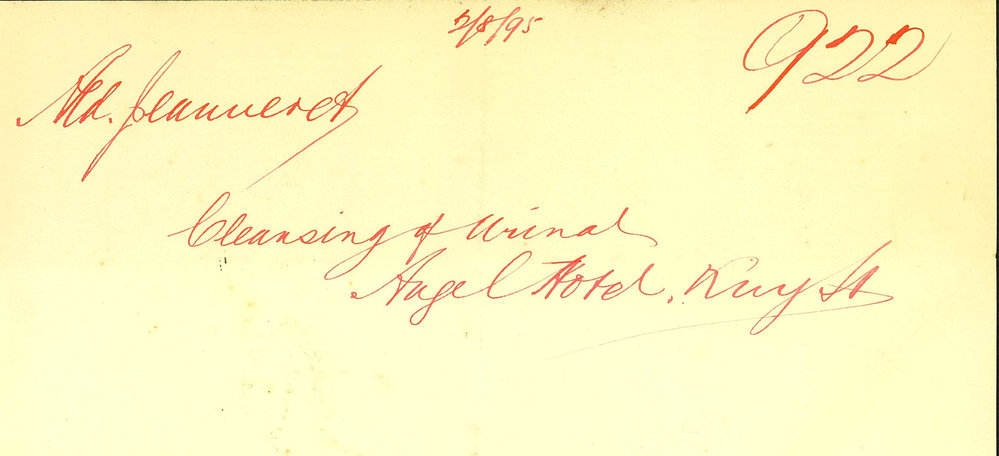 2/8/95
922
Ald. Jeanneret
Cleansing of Urinal
Angel Hotel, Kay St